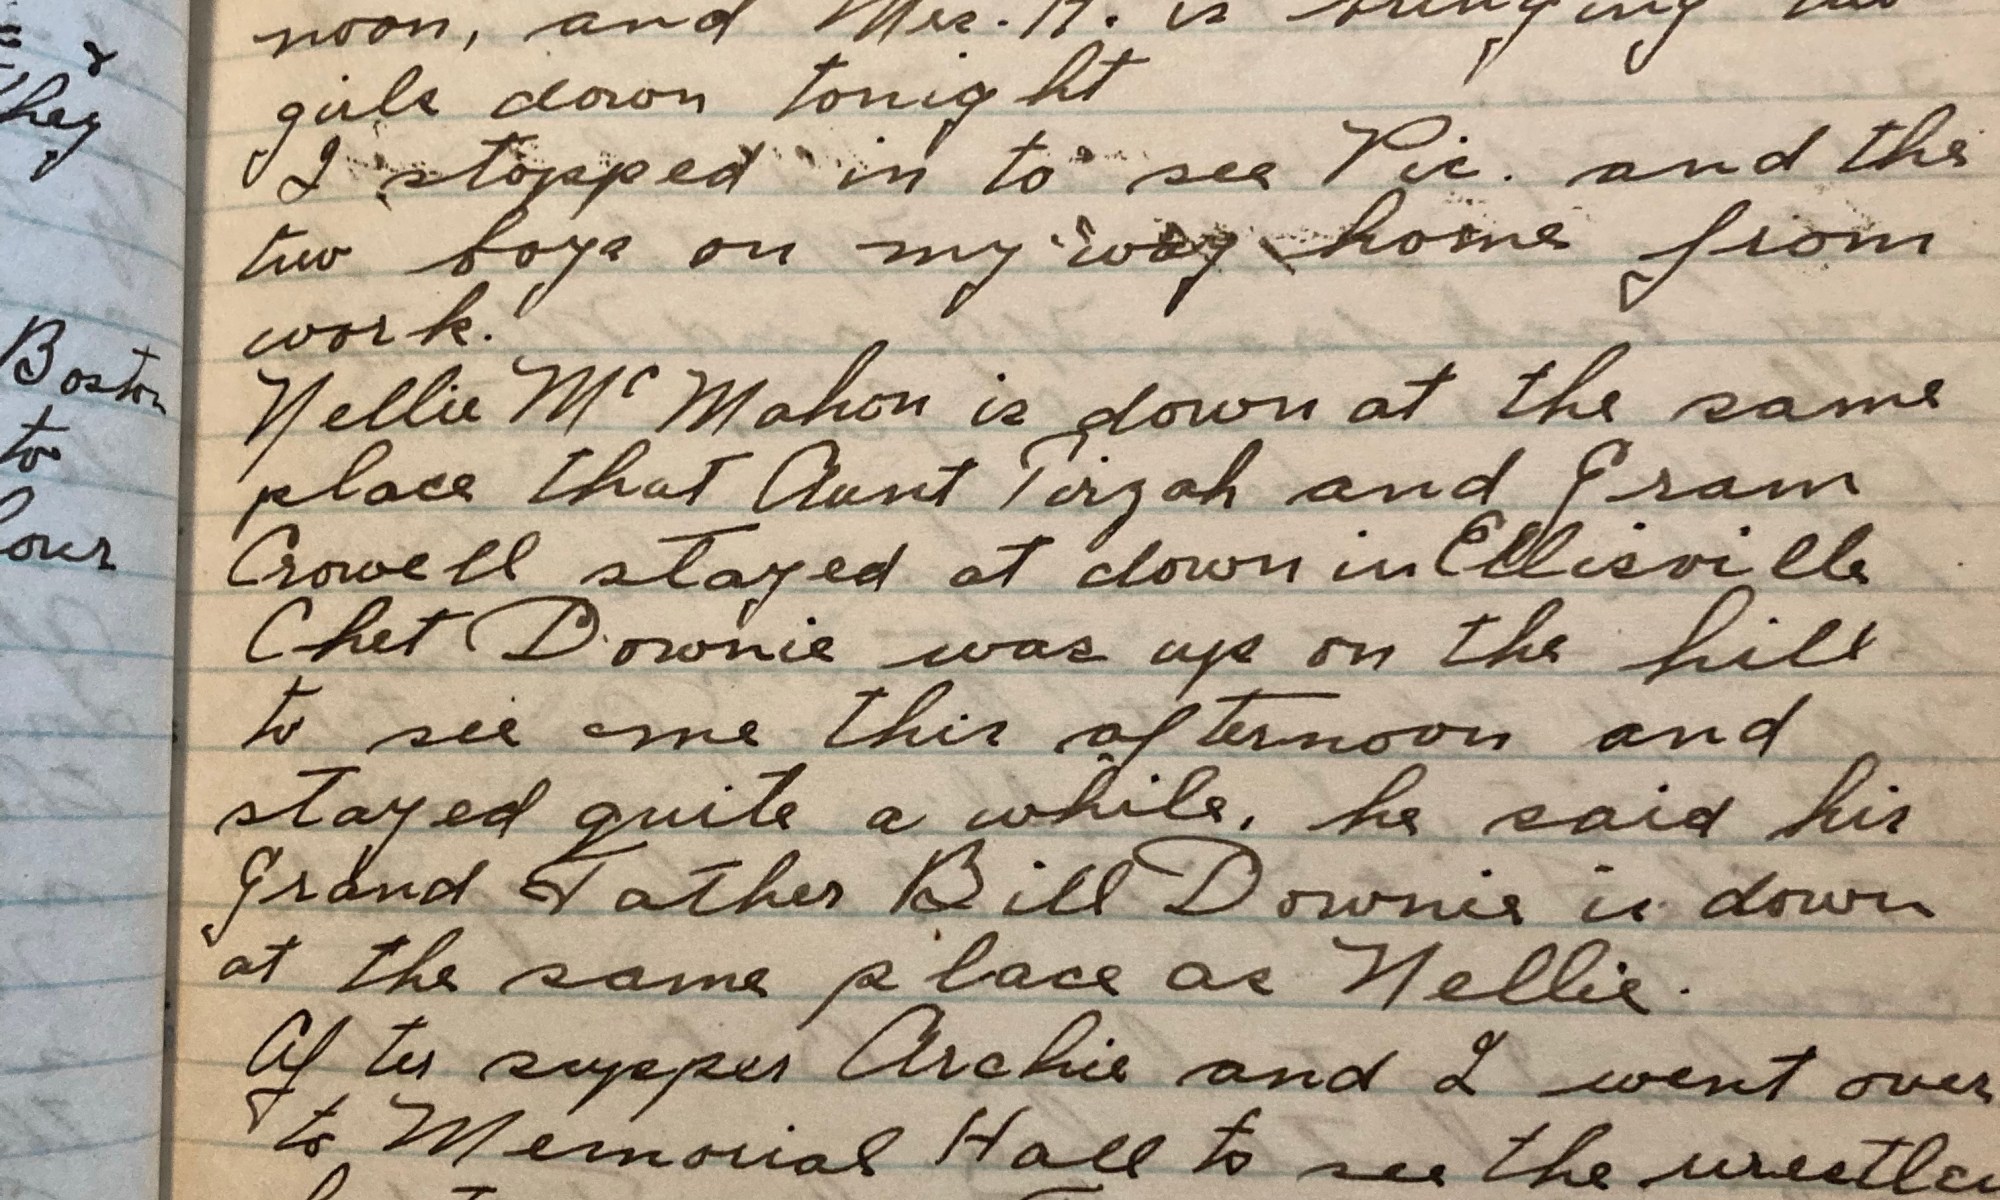 they
Boston
to
noon, and Mrs. H. is bringing two
girls down tonight
I stopped in to see Vic. and the
two boys on my way home from
work.
Nellie McMahon is down at the same
place that Aunt Tirzah and Gram
Crowell stayed at down in Ellisville
Chet Downie was up on the hill
to see me this afternoon and
stayed quite a while, he said his
Grand Father Bill Downie is down
at the same place as Nellie.
After supper Archie and I went over
to Memorial Hall to see the